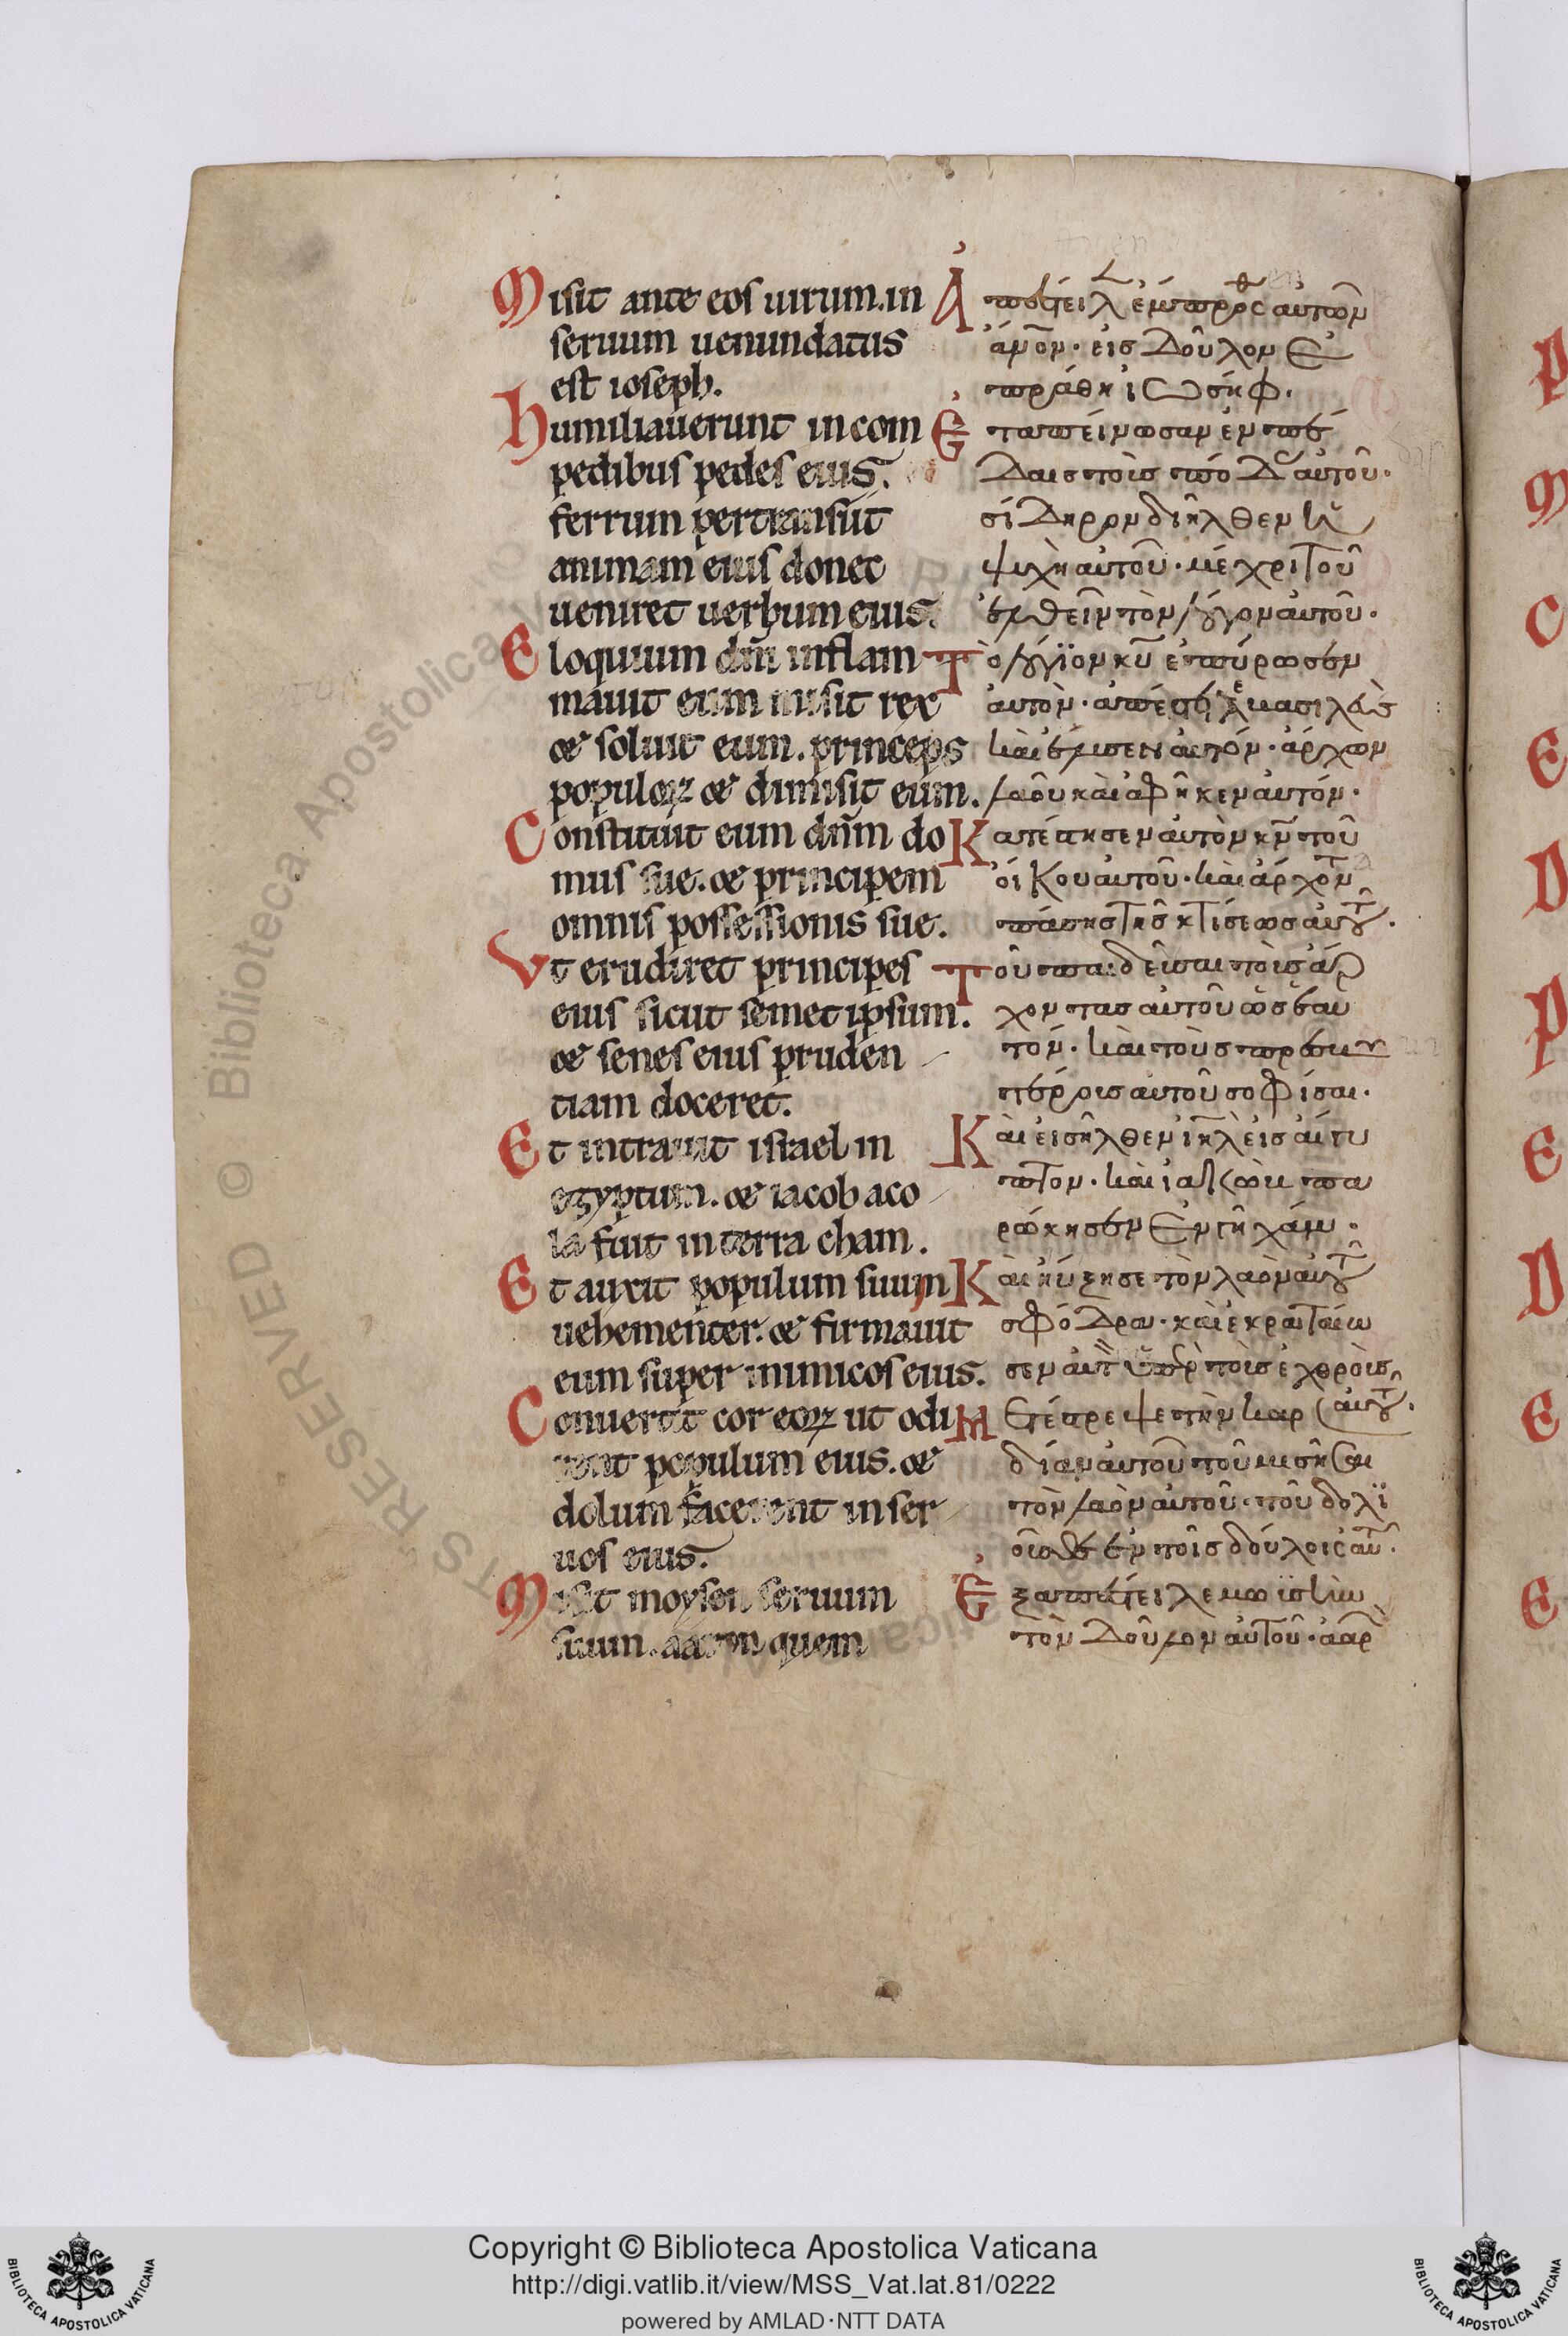 Misit ante eos uirum. in
seruum uenundatus
est ioseph.
Humiliauerunt in com
pedibus pedes eius.
ferrum pertransiit
animam eius donec
ueniret uerbum eius.
Eloquium dñi inflam
mauit eum misit rex
et soluit eum. princeps
populoꝝ et dimisit eum.
Constituit eum dñm do
mus sue. et principem
omnis possessionis sue.
Vt erudiret principes
eius sicut semet ipsum.
et senes eius pruden
tiam doceret.
Et intrauit israel in
egyptum. et iacob aco
la fuit in terra cham.
Et auxit populum suum
uehementer. et firmauit
eum super inimicos eius.
Conuertit cor eoꝝ ut odi
rent populum eius. et
dolum facerent in ser
uos eius.
Misit moysen seruum
suum. aaron quem
Ἀπέστειλεν ἔμπροσθεν αὐτῶν
ἄν̅ον· εἰς δοῦλον ἐ
πράθη ἰωσήφ.
Ἐταπείνωσαν ἐν πέ
δαις τοὺς πόδ αὐτοῦ.
σίδηρον διῆλθεν ἡ
ψυχὴ αὐτοῦ· μέχρι τοῦ
ἐλθεῖν τὸν λόγον αὐτοῦ.
Τὸ λόγϊον κυ̅ ἐπύρωσεν
αὐτὸν· ἀπέστειλε βασιλεὺς
καὶ ἔλυσεν αὐτόν· ἄρχων
λαοῦ καὶ ἀφῆκεν αὐτόν.
Κατέστησεν αὐτὸν κν̅ τοῦ
οἴκου αὐτοῦ· καὶ ἄρχοντ
πάσης τῆς κτίσεως αὐτοῦ.
Τοῦ παιδεῦσαι τοὺς ἄρ
χοντας αὐτοῦ ὡς ἑαυ
τόν· καὶ τοὺς πρεσβυ
τέρους αὐτοῦ σοφίσαι.
Καὶ εἰσῆλθεν ιη̅λ εἰς αἴγυ
πτον· καὶ ἰακὼβ πα
ρώκησεν ἐν γῆ χάμ.
Καὶ ηὔξησε τὸν λαὸν αὐτοῦ
σφόδρα· καὶ ἐκραταίω
σεν αὐτ ὑπὲρ τοὺς ἐχθροὺς
αὐτοῦ.
Μετέστρεψε τὴν καρ
δίαν αὐτοῦ τοῦ μισῆσαι
τὸν λαὸν αὐτοῦ· τοῦ δολϊ
οῦσθε ἐν τοῖς δούλοις αὐτ.
Ἐξαπέστειλε μωϋσῆν
τὸν δοῦλον αὐτοῦ· ἀαρ
Copyright © Biblioteca Apostolica Vaticana
http://digi.vatlib.it/view/MSS_Vat.lat.81/0222
powered by AMLAD·NTT DATA
BIBLIOTECA APOSTOLICA VATICANA
BIBLIOTECA APOSTOLICA VATICANA